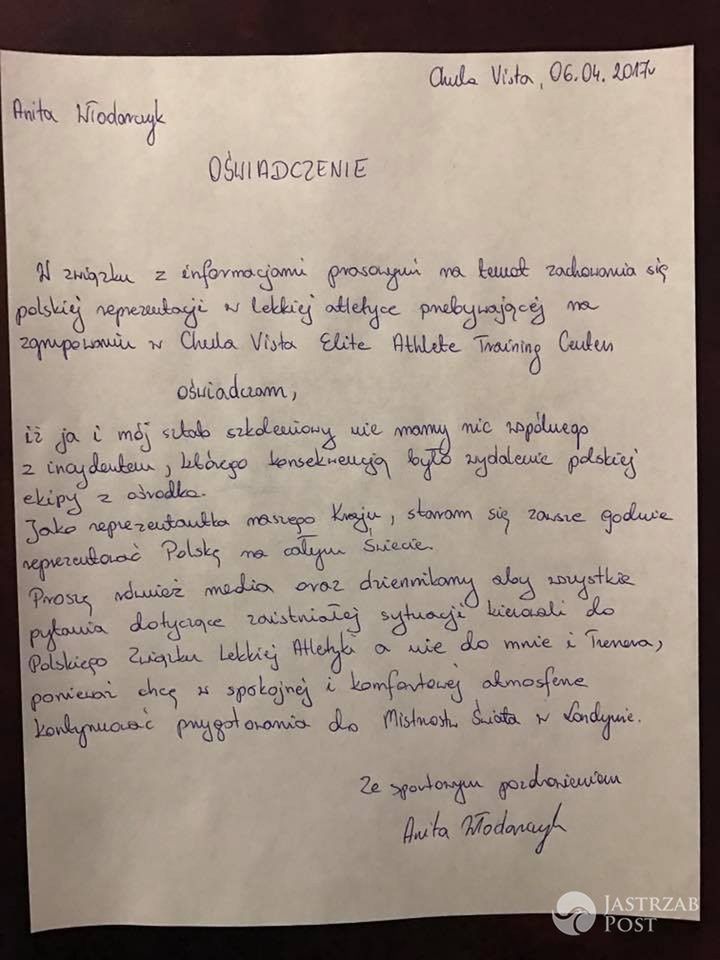 Chula Vista, 06.04.2017r
Anita Włodarczyk
OŚWIADCZENIE
W związku z informacjami prasowymi na temat zachowania się
polskiej reprezentacji w lekkiej atletyce przebywającej na
zgrupowaniu w Chula Vista Elite Athlete Training Center
oświadczam,
iż ja i mój sztab szkoleniowy nie mamy nic wspólnego
z incydentem, którego konsekwencją było wydalenie polskiej
ekipy z ośrodka.
Jako reprezentantka naszego Kraju, staram się zawsze godnie
reprezentować Polskę na całym Świecie.
Proszę również media oraz dziennikarzy aby wszystkie
pytania dotyczące zaistniałej sytuacji kierowali do
Polskiego Związku Lekkiej Atletyki a nie do mnie i Trenera,
ponieważ chcę w spokojnej i komfortowej atmosferze
kontynuować przygotowania do Mistrzostw Świata w Londynie.
Ze sportowym pozdrowieniem
Anita Włodarczyk
JASTRZAB
POST